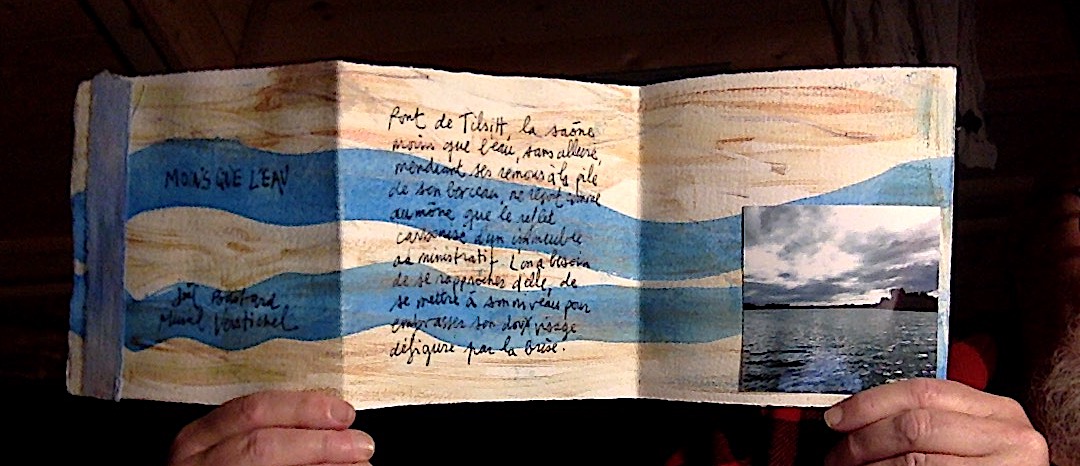 MOINS QUE L'EAU
Joël Bastard
Muriel Verstichel
Pont de Tilsitt, la saône
moins que l'eau, sans allure,
mendiant ses remous à la pile
de son berceau, ne reçoit comme
aumône que le reflet
carbonisé d'un immeuble
administratif. L'on a besoin
de se rapprocher d'elle, de
se mettre à son niveau pour
embrasser son doux visage
défiguré par la brise.